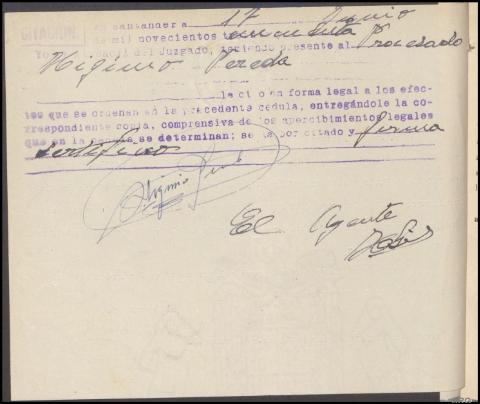 CITACION.
santander a 17 Junio
mil novecientos cincuenta
del Juzgado, teniendo presente al Procesado
Higinio Pereda
le cito en forma legal a los efec-
tos que se ordenan en la precedente cédula, entregándole la co-
rrespondiente copia, comprensiva de los apercibimientos legales
que en la misma se determinan; se da por citado y firma
certifico
Higinio
El Agente